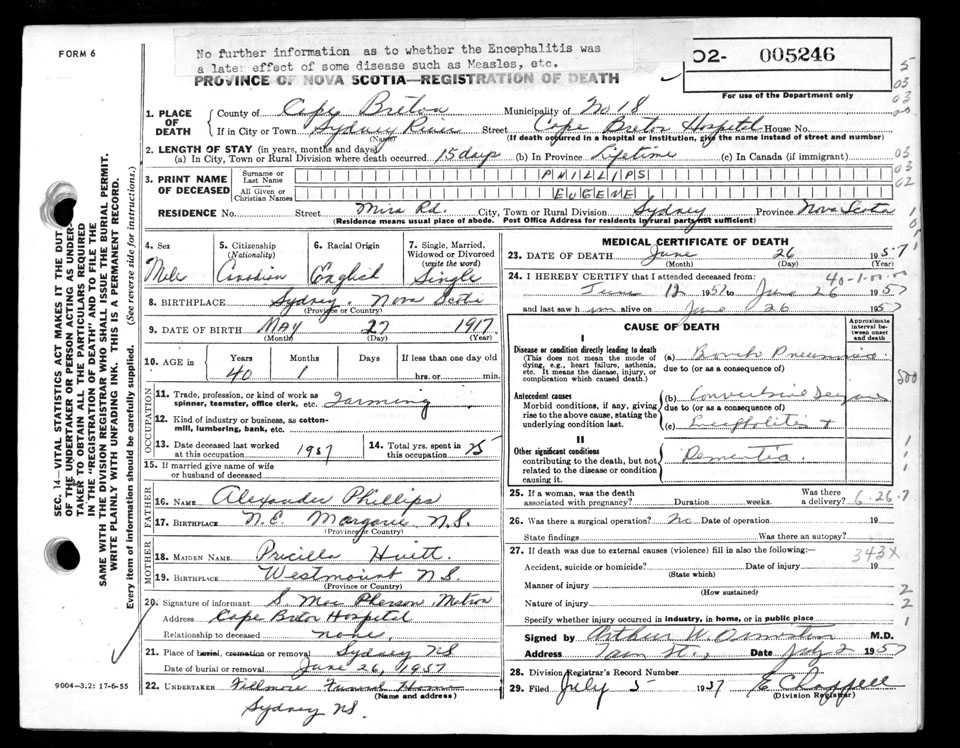 FORM 6
No further information as to whether the Encephalitis was
a later effect of some disease such as Measles, etc.
O2- 005246
For use of the Department only
PROVINCE OF NOVA SCOTIA—REGISTRATION OF DEATH
SEC. 14—VITAL STATISTICS ACT MAKES IT THE DUTY
OF THE UNDERTAKER OR PERSON ACTING AS UNDER-
TAKER TO OBTAIN ALL THE PARTICULARS REQUIRED
IN THE "REGISTRATION OF DEATH" AND TO FILE THE
SAME WITH THE DIVISION REGISTRAR WHO SHALL ISSUE THE BURIAL PERMIT.
WRITE PLAINLY WITH UNFADING INK. THIS IS A PERMANENT RECORD.
Every item of information should be carefully supplied. (See reverse side for instructions.)
1. PLACE OF DEATH
County of Cape Breton Municipality of No 18
If in City or Town Sydney River Street Cape Breton Hospital House No.
(Name) (If death occurred in a hospital or institution, give the name instead of street and number)
2. LENGTH OF STAY (in years, months and days)
(a) In City, Town or Rural Division where death occurred 15 days (b) In Province Lifetime (c) In Canada (if immigrant)
3. PRINT NAME OF DECEASED
Surname or Last Name PHILLIPS
All Given or Christian Names EUGENE
RESIDENCE No. Street Mira Rd. City, Town or Rural Division Sydney Province Nova Scotia
(Residence means usual place of abode. Post Office Address for residents in rural parts not sufficient)
4. Sex Male
5. Citizenship (Nationality) Canadian
6. Racial Origin English
7. Single, Married, Widowed or Divorced (write the word) Single
8. BIRTHPLACE Sydney. Nova Scotia
(Province or Country)
9. DATE OF BIRTH May 27 1917
(Month) (Day) (Year)
10. AGE IN Years Months Days If less than one day old
40 1 hrs. or min.
OCCUPATION
11. Trade, profession, or kind of work as spinner, teamster, office clerk, etc. Farming
12. Kind of industry or business, as cotton-mill, lumbering, bank, etc.
13. Date deceased last worked at this occupation 1957
14. Total yrs. spent in this occupation 25
15. If married give name of wife or husband of deceased
FATHER
16. NAME Alexander Phillips
17. BIRTHPLACE N.E. Margaree N.S.
(Province or Country)
MOTHER
18. MAIDEN NAME Pricilla Huett
19. BIRTHPLACE Westmount N.S.
(Province or Country)
20. Signature of informant S. MacPherson Matron
Address Cape Breton Hospital
Relationship to deceased none.
21. Place of burial, cremation or removal Sydney NS
Date of burial or removal June 26, 1957
22. UNDERTAKER Fillmore Funeral Home
(Name and address)
Sydney NS.
9004-3.2: 17-6-55
MEDICAL CERTIFICATE OF DEATH
23. DATE OF DEATH June 26 1957
(Month) (Day) (Year)
40-1-00-00
24. I HEREBY CERTIFY that I attended deceased from:
June 12 1957 to June 26 1957
and last saw him alive on June 26 1957
CAUSE OF DEATH
Approximate interval between onset and death
I
Disease or condition directly leading to death
(This does not mean the mode of dying, e.g., heart failure, asthenia, etc. It means the disease, injury, or complication which caused death.)
(a) Bronch Pneumonia
due to (or as a consequence of)
Antecedent causes
Morbid conditions, if any, giving rise to the above cause, stating the underlying condition last.
(b) Convulsive Seizure
due to (or as a consequence of)
(c) Encephalitis +
II
Other significant conditions
contributing to the death, but not related to the disease or condition causing it.
Dementia
25. If a woman, was the death associated with pregnancy? Duration weeks. Was there a delivery? 6-26-7
26. Was there a surgical operation? No Date of operation 19
State findings Was there an autopsy?
27. If death was due to external causes (violence) fill in also the following:
343X
Accident, suicide or homicide? Date of injury 19
(State which)
Manner of injury
(How sustained)
Nature of injury
Specify whether injury occurred in industry, in home, or in public place
Signed by Arthur W. Ormiston M.D.
Address Date July 2 1957
28. Division Registrar's Record Number
29. Filed July 5 1957 E Chappell
(Division Registrar)